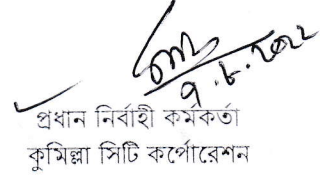 ৭.৮.২০২২
প্রধান নির্বাহী কর্মকর্তা
কুমিল্লা সিটি কর্পোরেশন